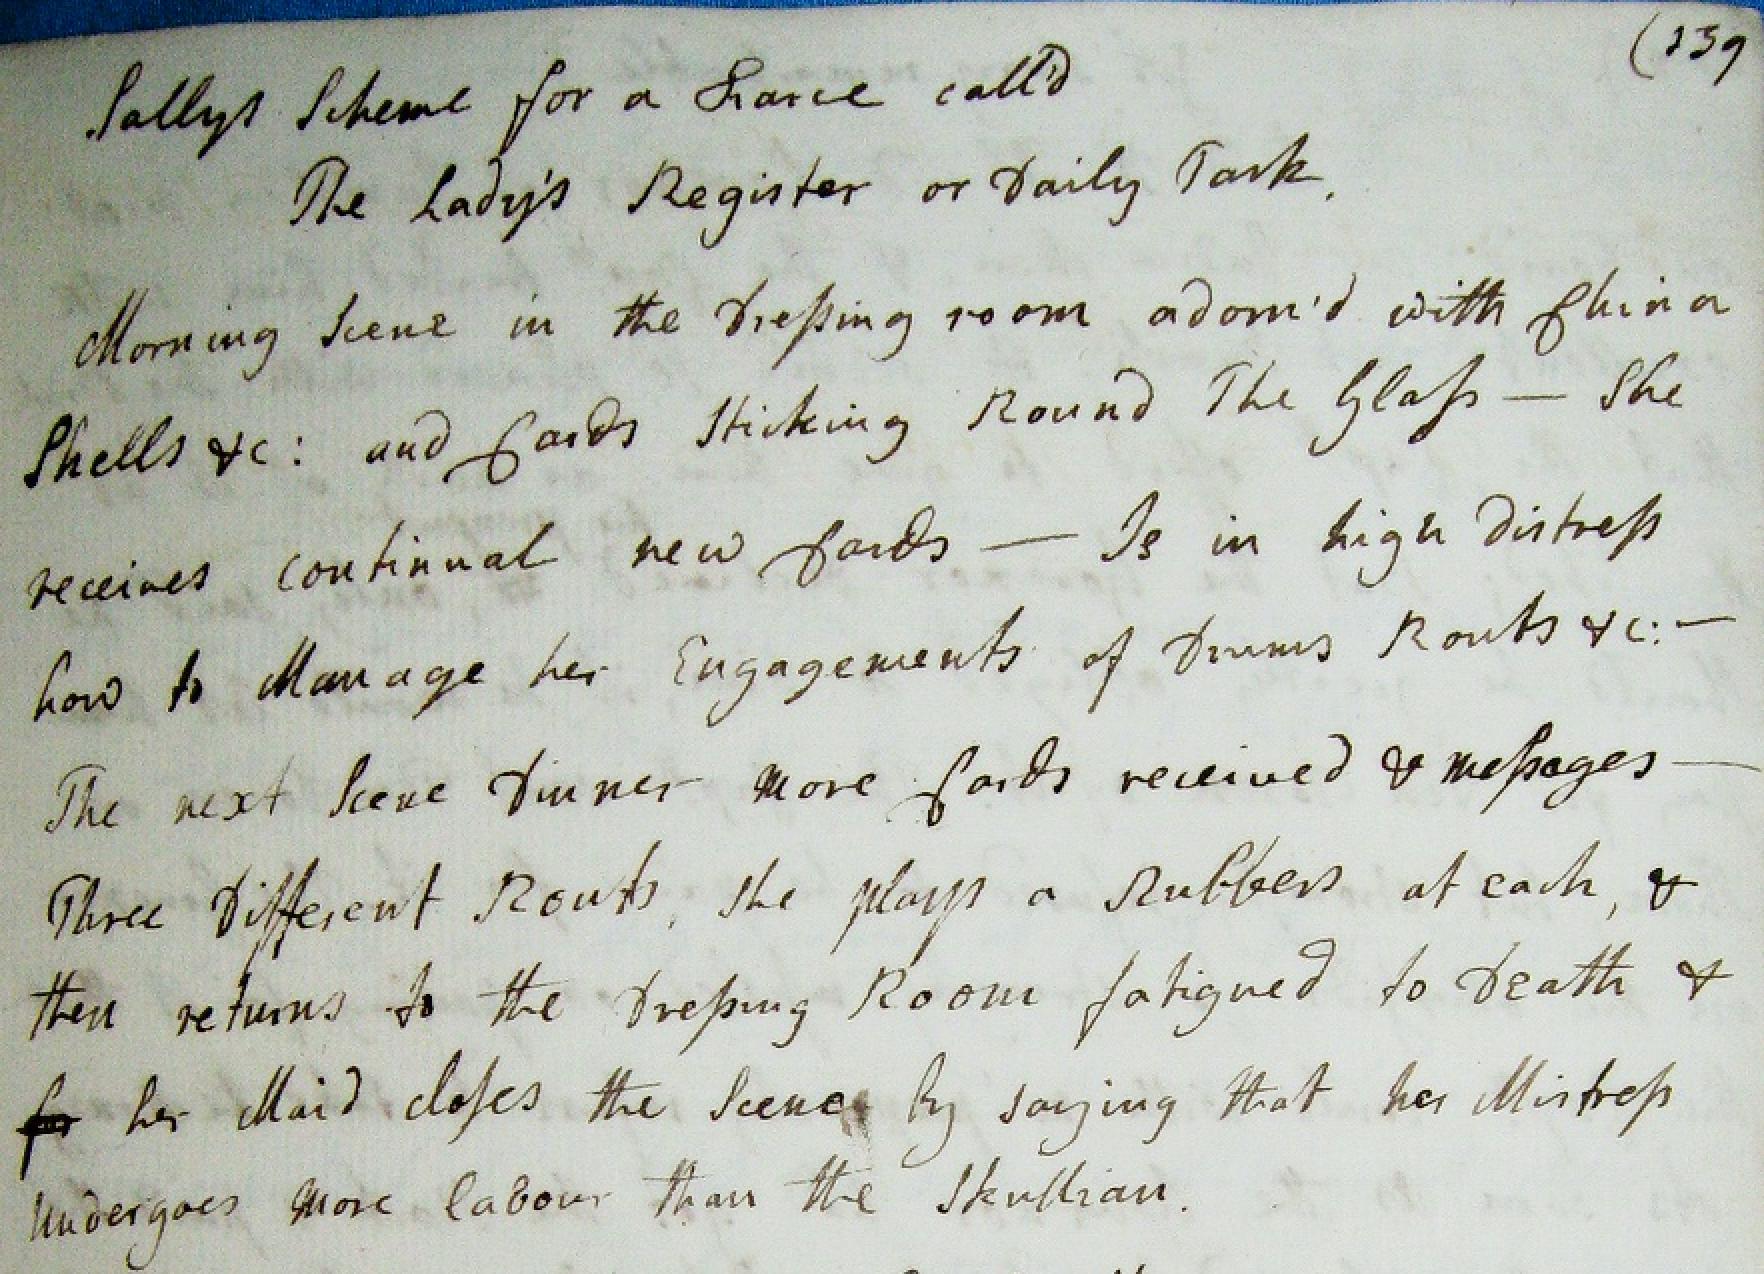 (139
Sallys Scheme for a Farce call'd
The Lady's Register or Daily Task.
Morning Scene in the Dreſsing room adorn'd with China
Shells &c: and Cards Sticking Round The Glaſs — She
receives continual new Cards — Is in high Distreſs
how to Manage her Engagements of Drums Routs &c: —
The next Scene Dinner more Cards received & meſsages —
Three Different Routs, she plays a Rubbers at each, &
then returns to the Dreſsing Room fatigued to Death &
for her Maid cloſes the Scene by saying that her Mistreſs
undergoes more labour than the Skullian.